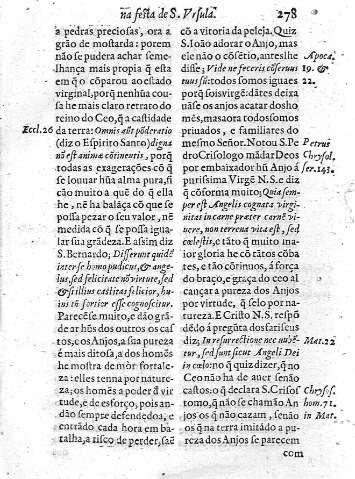 na festa de S. Vrsula. 278
a pedras preciosas, ora a
grão de mostarda: porem
não se pudera achar seme
lhança mais propia q̃ esta
em q̃ o cõparou ao estado
virginal, porq̃ nenhũa cou
sa he mais claro retrato do
reino do Ceo, q̃ a castidade
da terra: Omnis autẽ põderatio
(diz o Espirito Santo) digna
nõ est animæ cõtinentis, porq̃
todas as exagerações cõ q̃
se louuar hũa alma pura, fi
cão muito a quẽ do q̃ ella
he, nẽ ha balãça cõ que se
possa pezar o seu valor, nẽ
medida cõ q̃ se possa igua
lar sua grãdeza. E assim diz
S. Bernardo; Differunt quidẽ
inter se homo pudicus, & ange-
lus, sed felicitate nõ virtute, sed
& si illius castitas felicior, hu-
ius tñ fortior esse cognoscitur.
Parecẽse muito, e dão grã-
de ar hũs dos outros os cas
tos, e os Anjos, a sua pureza
é mais ditosa, a dos homẽs
he mostra de mòr fortale-
za: elles tenna por nature-
za; os homẽs a poder d̃ vir
tude, e de esforço; pois an-
dão sempre defendedoa, e
entrãdo cada hora em ba-
talha, a risco de perder, saẽ
Eccl. 26
cõ a vitoria da peleja. Quiz
S. Ioão adorar o Anjo, mas
ele não o cõsétio, antes lhe
disse; Vide ne feceris cõseruus
tuus sũ: todos somos iguaes
porq̃ sois virgẽ: dâtes deixa
uãse os anjos acatar dos ho
mẽs, mas agora todos somos
priuados, e familiares do
mesmo Señor. Notou S. Pe
dro Crisologo mãdar Deos
por embaixador hũ Anjo á
purissima Virgẽ N. S. e diz
q̃ cõforma muito; Quia sem-
per est Angelis cognata virgi-
nitas in carne præter carnẽ vi-
uere, non terrena vita est, sed
cœlestis, e tãto q̃ muito ma
ior gloria he cõ tãtos cõba
tes, e tão cõtinuos, á força
do braço, e graça do ceo al
cançar a pureza dos Anjos
por virtude, q̃ selo por na-
tureza. E Cristo N. S. respõ
dẽdo á pregũta dos fariseus
diz; In resurrectione nec nubẽ-
tur, sed sunt sicut Angeli Dei
in cælo: no q̃ quiz dizer, q̃ no
Ceo não ha de auer senão
castos: o q̃ declara S. Crisos
tomo, q̃ não se chamão An
jos os q̃ não cazam, senão
os q̃ na terra imitado a pu
reza dos Anjos se parecem
com
Apoca.
19. &
22.
Petrus
Chrysol.
ser. 143.
Mat. 22
Chrysos.
hom. 71.
in Mat.